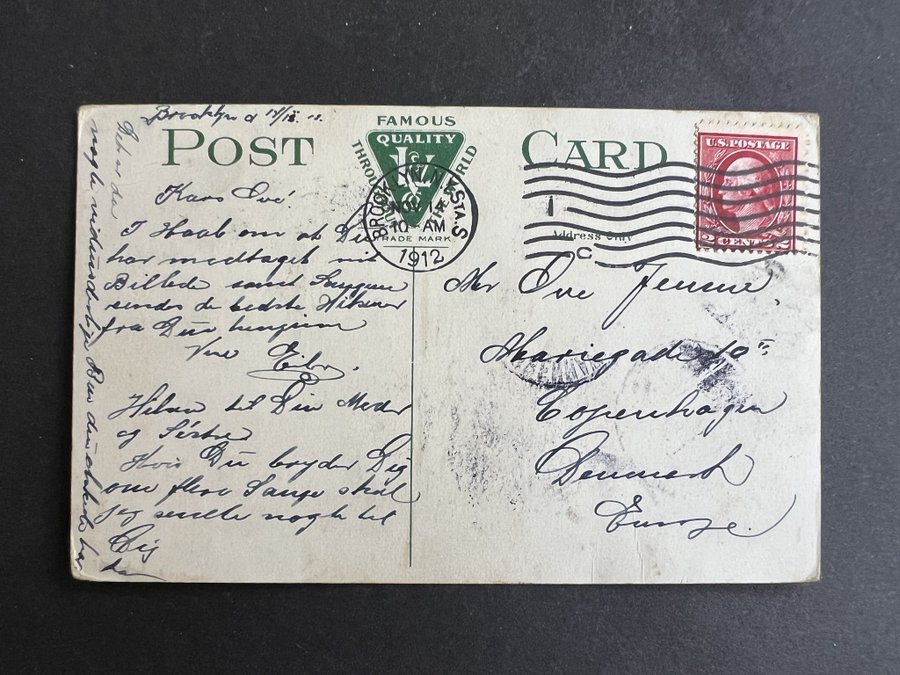 Brooklyn d
FAMOUS
QUALITY
THROUGHOUT THE WORLD
TRADE MARK
POST CARD
BROOKLYN, N.Y. STA. S
NOV 14
10 AM
1912
U.S. POSTAGE
2 CENTS 2
Address Only
C
Kære Ove!
I Haab om at Du
har modtaget mit
Billede samt Sangene
sendes de bedste Hilsner
fra Din hengivne
Ven
Hilsen til Din Moder
og Søstre
Hvis Du bryder Dig
om flere Sange skal
jeg sende nogle til
Dig
Mr Ove Jensen
Mariegade 10
Copenhagen
Denmark
Europe.